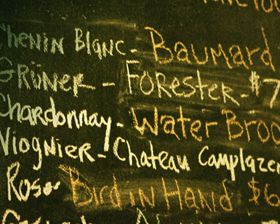 Chenin Blanc - Baumard
Grüner - Forester - $7
Chardonnay - Water Broo
Viognier - Chateau Camplazen
Rose Bird in Hand $